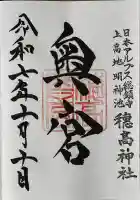 日本アルプス総鎮守
上高地 明神池
穂高神社
奥宮
令和七年十月十日